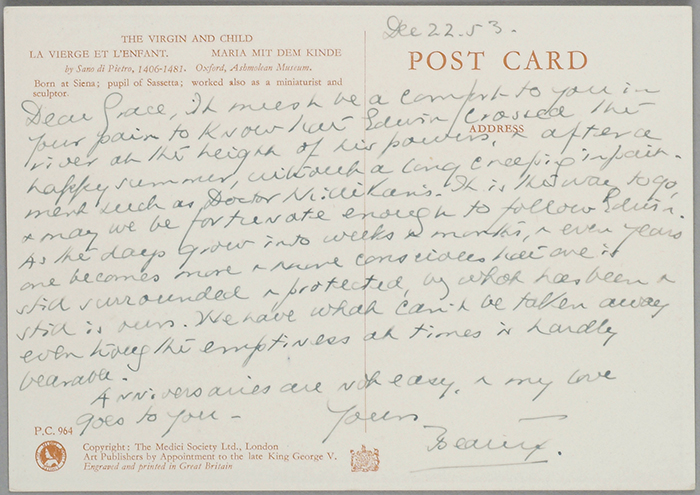 THE VIRGIN AND CHILD
LA VIERGE ET L'ENFANT. MARIA MIT DEM KINDE
by Sano di Pietro, 1406-1481. Oxford, Ashmolean Museum.
Born at Siena; pupil of Sassetta; worked also as a miniaturist and
sculptor.
Dec 22. 53.
POST CARD
ADDRESS
Dear Grace, It must be a comfort to you in
your pain to know that Edwin crossed the
river at the height of his powers, & after a
happy summer, without a long creeping impair-
ment such as Doctor Millikan's. It is the way to go,
& may we be fortunate enough to follow Edwin.
As the days grow into weeks & months, & even years
one becomes more & more conscious that one is
still surrounded & protected, by what has been &
still is ours. We have what can't be taken away
even though the emptiness at times is hardly
bearable.
Anniversaries are not easy, & my love
goes to you – Yours
P.C. 964
Copyright: The Medici Society Ltd., London
Art Publishers by Appointment to the late King George V.
Engraved and printed in Great Britain